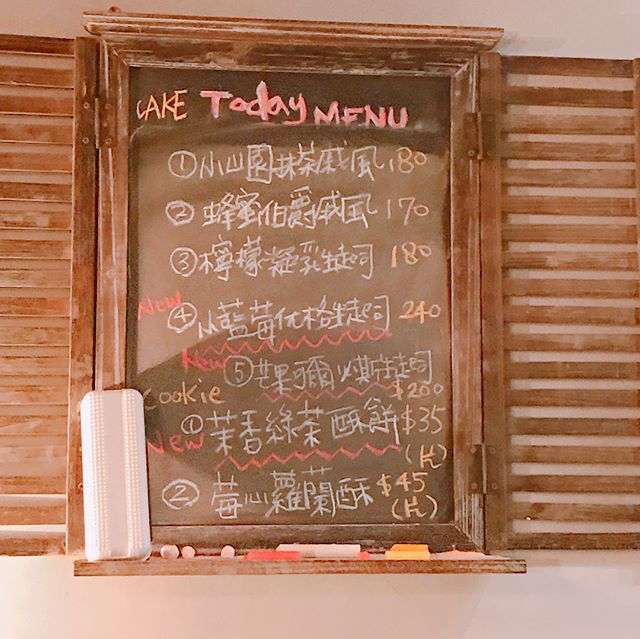 CAKE Today MENU
①小山園抹茶戚風 180
②蜂蜜伯爵戚風 170
③檸檬凝乳起司 180
New
④藍莓优格起司 240
New
⑤芒果 起司
$200
Cookie
①茉香綠茶酥餅 $35
New
(片)
②莓心蘿蘭酥 $45
(片)